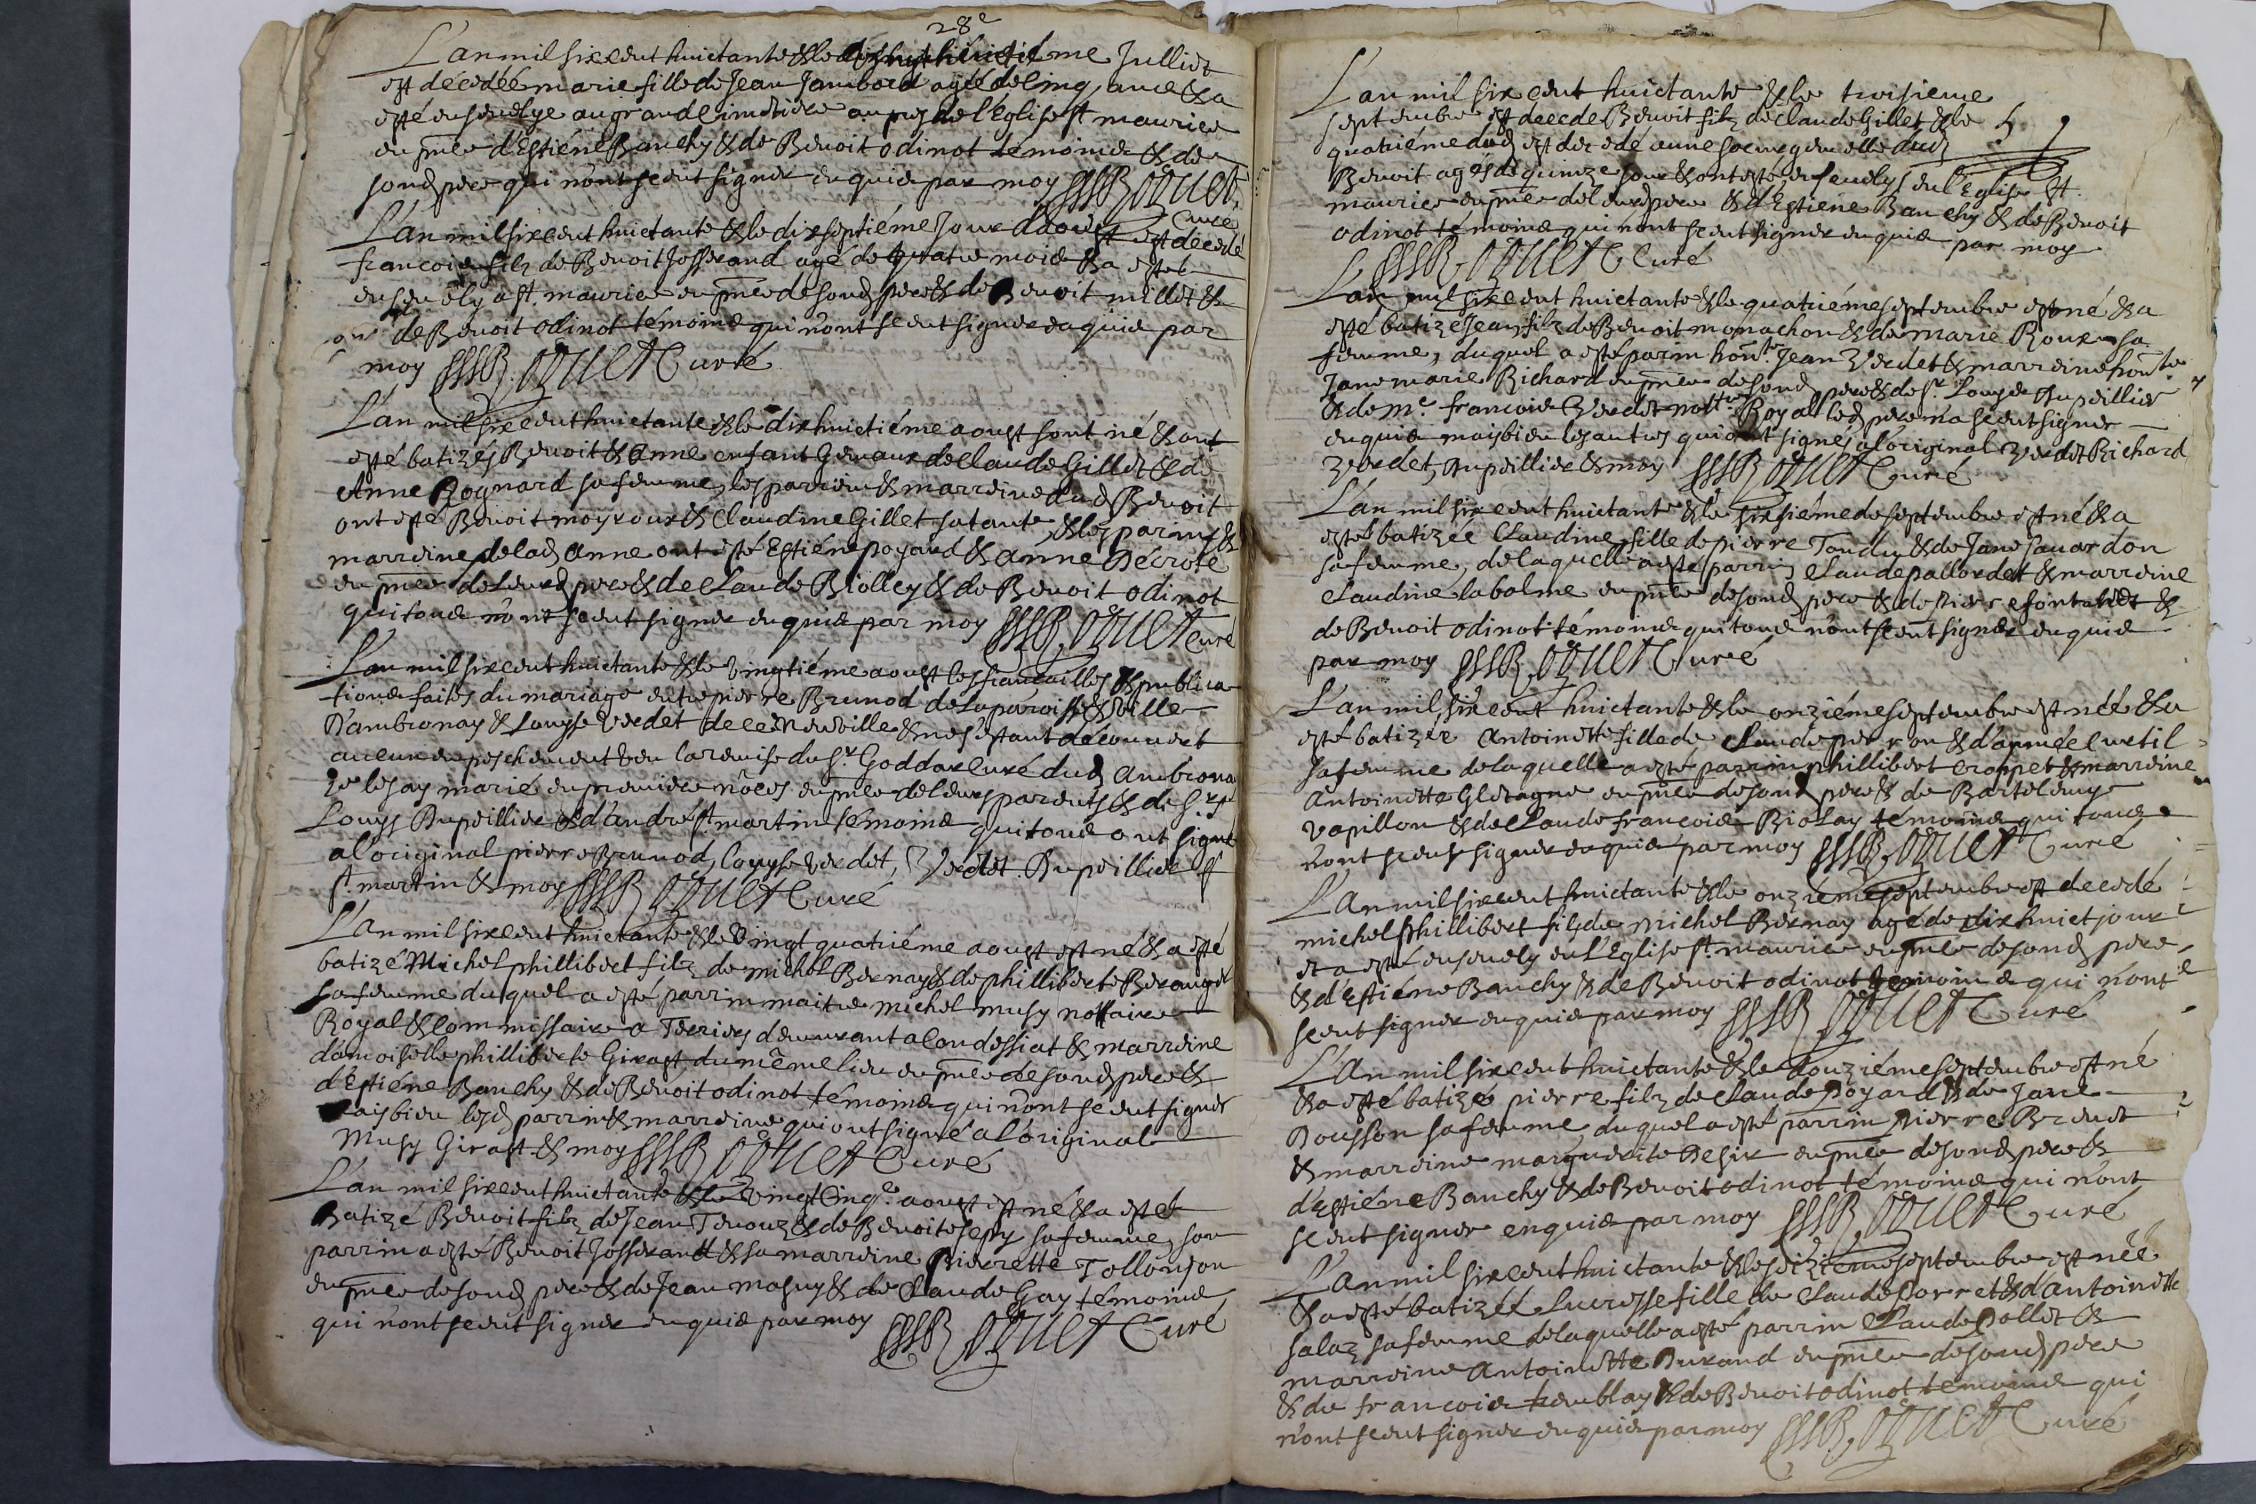 28e
L'an mil six cent huictante & le me Julliet
est décédée marie fille de Jean Jambord agée de cinq ans & a
esté ensevelye au grand cimetiere aupres de l'Eglise st maurice
en pnce d'Estiéne Banchy & de Benoit odinot témoins & de
sond pere qui n'ont sceut signer enquis par moy Curé
L'an mil six cent huictante & le dixseptiéme Jour d'aoust est décédé
francois filz de Benoit Josserand agé de quatre mois & a esté
ensevely a st maurice en pnce de sond pere & de Benoit millet &
de Benoit odinot témoins qui n'ont sceut signer enquis par
moy Curé
L'an mil six cent huictante & le dixhuictiéme aoust sont né & ont
esté batizés Benoit & Anne enfant Gemaux de Claude Gillet & de
Anne Rognard sa femme, les parrein & marreine dud Benoit
ont esté Benoit moyroux & Claudine Gillet sa tante & les parins &
marreine de lad Anne ont esté Estiéne poyard & Anne Décrote
en pnce de leurd pere & de Claude Biolley & de Benoit odinot
qui tous n'ont sceut signer enquis par moy Curé
L'an mil six cent huictante & le vingtiéme aoust les fiancailles & publica
tions faites du mariage entre pierre Brunod de la paroisse & ville
D'ambronay & Louyse verdet de ce & nes'estant découvert
aucun empeschement veu la remise du sr. Goddar curé dud Ambrona
Je les ay marié en premiere nôces en pnce de leurs parents & de sr
Louys Dupeillier & d'andré st martin témoins qui tous ont signé
a l'original pierre Brunod, louyse verdet, Verdet. Dupeillier
st martin & moy Curé
L'an mil six cent huictante & le vingt quatriéme aoust est né & a esté
batizé Michel phillibert filz de michel Bernay & de phillibertoe Beranger
sa femme duquel a esté parrin maitre michel musy nottaire
Royal & Commissaire a Terriers demeurant a Condessiat & marreine
damoiselle philliberte Girast du même lieu en pnce de sond pere &
d'Estiéne Banchy & de Benoit odinot témoins qui n'ont sceut signer
mais bien lesd parrin & marreine qui ont signé a l'original
Musy Girast & moy Curé
L'an mil six cent huictante & le vingt Cinqe aoust est né & a esté
Batizé Benoit filz de Jean Tenouz & de Benoite sepy sa femme, son
parrin a esté Benoit Josserand & sa marreine Pierrette Tollonjon
en pnce de sond pere & de Jean masuy & de Claude Gay témoins
qui n'ont sceut signer enquis par moy Curé
L'an mil six cent huictante & le troisieme
septembre est decede Benoit filz de Claude Gillet & le
quatriéme dud est decedé anne soeur gemelle dud
Benoit agés de quinze jour & ont esté ensevelys en l'Eglise st
maurice en pnce de leurd pere & d'Estiene Banchy & de Benoit
odinot témoins qui n'ont sceut signer enquis par moy
Curé
L'an mil six cent huictante & le quatriéme septembre est né & a
esté batizé Jean filz de Benoit monachon & de marie Roux sa
femme, duquel a esté parin honte Jean Verdet & marreine honte
Jane marie Richard en pnce de sond pere & de sr. Louys Dupeillier
& de me. francois Verdet nottre Royal led pere n'a sceut signer
enquis mais bien les autres qui ont signés a l'original Verdet Richard
Verdet, Dupeillier & moy Curé
L'an mil six cent huictante & le sixsiéme de septembre est né & a
esté batizée Claudine fille de pierre Tondu & de Jane sauardon
sa femme, de laquelle a esté parrin Claude pallordet & marreine
Claudine labalme en pnce de sond pere & de pierre &
de Benoit odinot témoins qui tous n'ont sceut signer enquis
par moy Curé
L'an mil six cent huictante & le onziéme septembre est née & a
esté batizée Antoinette fille de Claude pierron & d'aymée Curtil
sa femme de laquelle a esté parrin phillibert Croppet & marreine
Antoinette Gletagne en pnce de sond pere & de Bartelemy
vapillon & de Claude francois Biolay témoins qui tous
n'ont sceut signer enquis par moy Curé
L'An mil six cent huictante & le onziéme septembre est decedé
michel phillibert filz de michel Bernay agé de dix huict jour
et a esté ensevely en l'Eglise st maurice en pnce de sond pere
& d'Estiéne Banchy & de Benoit odinot temoins qui n'ont
sceut signer enquis par moy Curé
L'An mil six cent huictante & le douziéme septembre est né
& a esté batizé pierre filz de Claude Poyard & de Jane
Dousson sa femme duquel a esté parrin Pierre Brevet
& marreine marguerite Desir en pnce de sond pere &
d'Estiéne Banchy & de Benoit odinot témoins qui n'ont
sceut signer enquis par moy Curé
L'An mil six cent huictante & le seiziéme septembre est née
& a esté batizée Lucresse fille de Claude Porret & d'antoinette
salaz sa femme de laquelle a esté parrin Claude Pollet &
marreine Antoinette Durand en pnce de sond pere
& de francois tremblay & de Benoit odinot temoins qui
n'ont sceut signer enquis par moy Curé